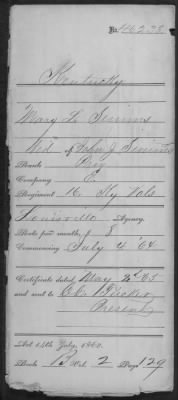 No. 46238
Kentucky
Mary L. Simms
Wid of John J Simms
Rank Priv
Company E
Regiment 16 Ky Vols
Louisville Agency.
Rate per month, $ 8
Commencing July 4 '64
Certificate dated May '65
and sent to
Present
Act 14th July, 1862.
Book B Vol. 2 Page 129